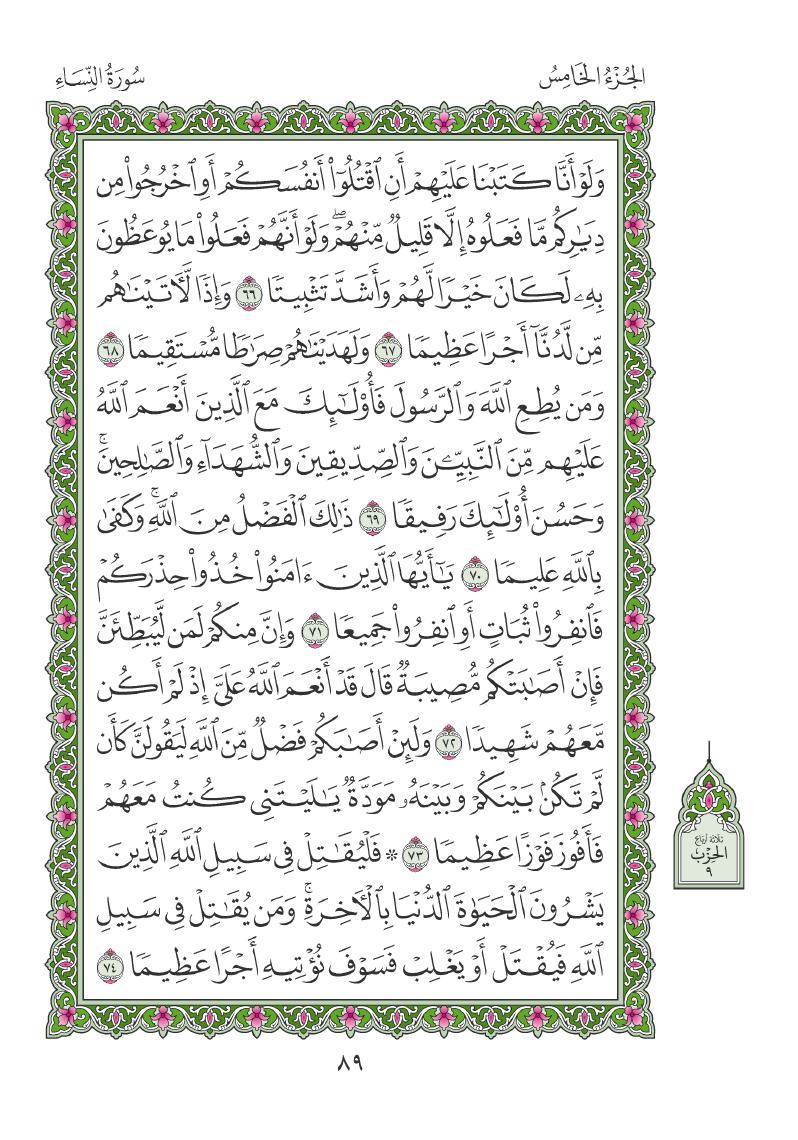 الجُزْءُ الخَامِسُ
سُورَةُ النِّسَاءِ
وَلَوْ أَنَّا كَتَبْنَا عَلَيْهِمْ أَنِ ٱقْتُلُوٓا۟ أَنفُسَكُمْ أَوِ ٱخْرُجُوا۟ مِن
دِيَـٰرِكُم مَّا فَعَلُوهُ إِلَّا قَلِيلٌ مِّنْهُمْ ۖ وَلَوْ أَنَّهُمْ فَعَلُوا۟ مَا يُوعَظُونَ
بِهِۦ لَكَانَ خَيْرًا لَّهُمْ وَأَشَدَّ تَثْبِيتًا ٦٦ وَإِذًا لَّـَٔاتَيْنَـٰهُم
مِّن لَّدُنَّآ أَجْرًا عَظِيمًا ٦٧ وَلَهَدَيْنَـٰهُمْ صِرَٰطًا مُّسْتَقِيمًا ٦٨
وَمَن يُطِعِ ٱللَّهَ وَٱلرَّسُولَ فَأُو۟لَـٰٓئِكَ مَعَ ٱلَّذِينَ أَنْعَمَ ٱللَّهُ
عَلَيْهِم مِّنَ ٱلنَّبِيِّـۧنَ وَٱلصِّدِّيقِينَ وَٱلشُّهَدَآءِ وَٱلصَّـٰلِحِينَ ۚ
وَحَسُنَ أُو۟لَـٰٓئِكَ رَفِيقًا ٦٩ ذَٰلِكَ ٱلْفَضْلُ مِنَ ٱللَّهِ ۚ وَكَفَىٰ
بِٱللَّهِ عَلِيمًا ٧٠ يَـٰٓأَيُّهَا ٱلَّذِينَ ءَامَنُوا۟ خُذُوا۟ حِذْرَكُمْ
فَٱنفِرُوا۟ ثُبَاتٍ أَوِ ٱنفِرُوا۟ جَمِيعًا ٧١ وَإِنَّ مِنكُمْ لَمَن لَّيُبَطِّئَنَّ
فَإِنْ أَصَـٰبَتْكُم مُّصِيبَةٌ قَالَ قَدْ أَنْعَمَ ٱللَّهُ عَلَىَّ إِذْ لَمْ أَكُن
مَّعَهُمْ شَهِيدًا ٧٢ وَلَئِنْ أَصَـٰبَكُمْ فَضْلٌ مِّنَ ٱللَّهِ لَيَقُولَنَّ كَأَن
لَّمْ تَكُنۢ بَيْنَكُمْ وَبَيْنَهُۥ مَوَدَّةٌ يَـٰلَيْتَنِى كُنتُ مَعَهُمْ
فَأَفُوزَ فَوْزًا عَظِيمًا ٧٣ ۞ فَلْيُقَـٰتِلْ فِى سَبِيلِ ٱللَّهِ ٱلَّذِينَ
يَشْرُونَ ٱلْحَيَوٰةَ ٱلدُّنْيَا بِٱلْـَٔاخِرَةِ ۚ وَمَن يُقَـٰتِلْ فِى سَبِيلِ
ٱللَّهِ فَيُقْتَلْ أَوْ يَغْلِبْ فَسَوْفَ نُؤْتِيهِ أَجْرًا عَظِيمًا ٧٤
ثلاثة أرباع
الحزب
٩
٨٩